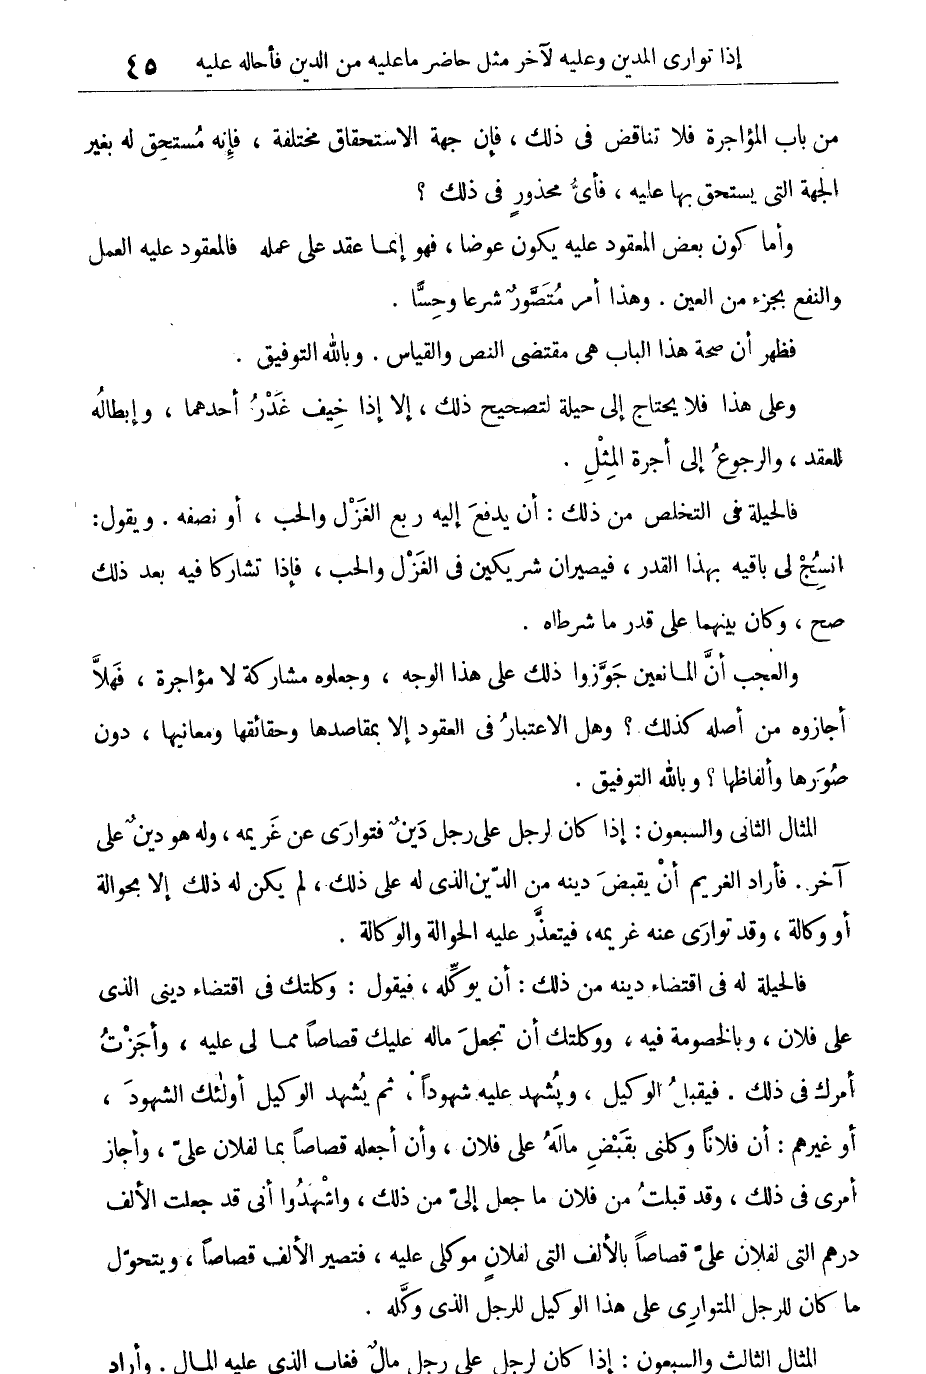 إذا توارى المدين وعليه لآخر مثل حاضر ماعليه من الدين فأحاله عليه ٤٥
من باب المؤاجرة فلا تناقض فى ذلك ، فإن جهة الاستحقاق مختلفة ، فإنه مُستحِق له بغير
الجهة التى يستحق بها عليه ، فأىُّ محذورٍ فى ذلك ؟
وأما كون بعض المعقود عليه يكون عوضا ، فهو إنما عقد على عمله فالمعقود عليه العمل
والنفع بجزء من العين . وهذا أمر مُتَصَّورٌ شرعا وحِسًّا .
فظهر أن صحة هذا الباب هى مقتضى النص والقياس . وبالله التوفيق .
وعلى هذا فلا يحتاج إلى حيلة لتصحيح ذلك ، إلا إذا خِيف غَدْرُ أحدهما ، وإبطالُه
للعقد ، والرجوعُ إلى أجرة المِثْلِ .
فالحيلة فى التخلص من ذلك : أن يدفعَ إليه ربع الغَزْل والحب ، أو نصفه . ويقول:
انسِجُْ لى باقيه بهذا القدر ، فيصيران شريكين فى الغَزْل والحب ، فإذا تشاركا فيه بعد ذلك
صح ، وكان بينهما على قدر ما شرطاه .
والعجب أنَّ المانعين جَوَّزوا ذلك على هذا الوجه ، وجعلوه مشاركة لا مؤاجرة ، فَهلاَّ
أجازوه من أصله كذلك ؟ وهل الاعتبارُ فى العقود إلا بمقاصدها وحقائقها ومعانيها ، دون
صُوَرها وألفاظها ؟ وبالله التوفيق .
المثال الثانى والسبعون : إذا كان لرجل على رجل دَينٌ فتوارَى عن غَريمه ، وله هو دينٌ على
آخر . فأراد الغريم أنْ يقبضَ دينه من الدّين الذى له على ذلك ، لم يكن له ذلك إلا بحوالة
أو وكالة ، وقد توارَى عنه غريمه، فيتعذَّر عليه الحوالة والوكالة .
فالحيلة له فى اقتضاء دينه من ذلك : أن يوكِّله ، فيقول : وكلتك فى اقتضاء دينى الذى
على فلان ، وبالخصومة فيه ، ووكلتك أن تجعلَ ماله عليك قصاصاً مما لى عليه ، وأجَزْتُ
أمرك فى ذلك . فيقبلُ الوكيل ، ويُشهد عليه شهوداً ، ثم يُشهد الوكيل أولئك الشهودَ ،
أو غيرهم : أن فلاناً وكلنى بقَبْضِ مالَهُ على فلان ، وأن أجعله قصاصاً بما لفلان علىّ ، وأجاز
أمرى فى ذلك ، وقد قبلتُ من فلان ما جعل إلىّ من ذلك ، واشْهَدُوا أنى قد جعلت الألف
درهم التى لفلان علىّ قصاصاً بالألف التى لفلانٍ موكلى عليه ، فتصير الألف قصاصاً ، ويتحوّل
ما كان للرجل المتوارِى على هذا الوكيل للرجل الذى وكَّله .
المثال الثالث والسبعون : إذا كان لرجل على رجل مالٌ فغاب الذى عليه المال . وأراد